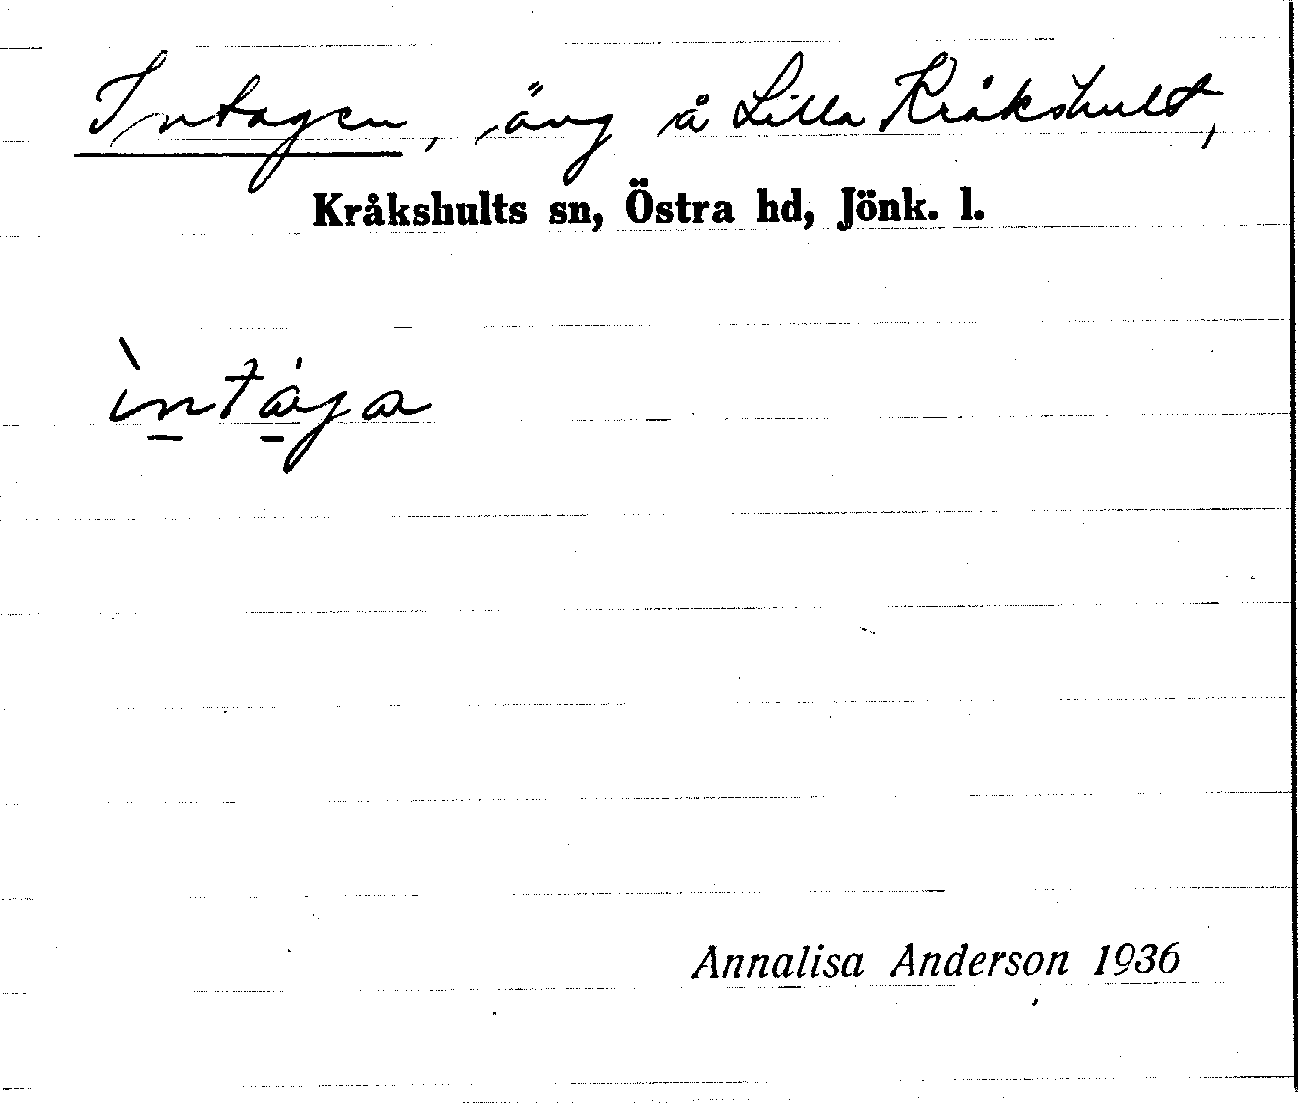 Intagen, äng å Lilla Kråkshult,
Kråkshults sn, Östra hd, Jönk. l.
ìn̠tá̠ga
Annalisa Anderson 1936